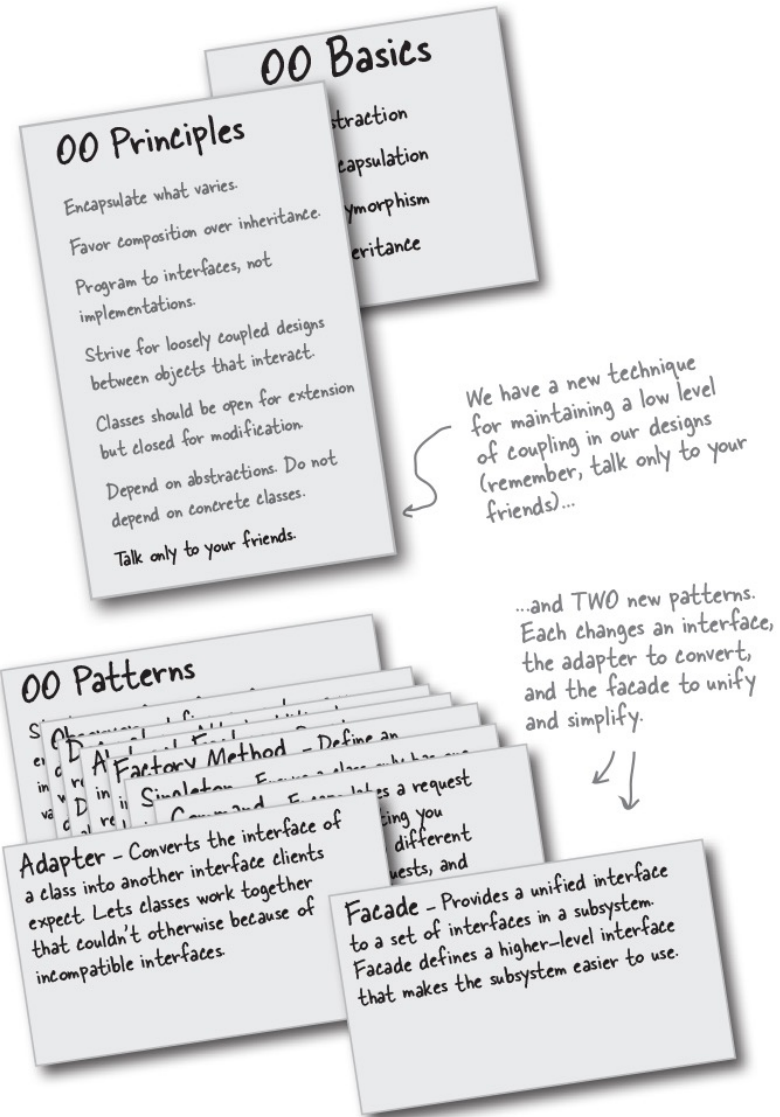 OO Basics
OO Principles
Encapsulate what varies.
Favor composition over inheritance.
Program to interfaces, not
implementations.
Strive for loosely coupled designs
between objects that interact.
Classes should be open for extension
but closed for modification.
Depend on abstractions. Do not
depend on concrete classes.
Talk only to your friends.
We have a new technique
for maintaining a low level
of coupling in our designs
(remember, talk only to your
friends)...
...and TWO new patterns.
Each changes an interface,
the adapter to convert,
and the facade to unify
and simplify.
OO Patterns
Factory Method - Define an
Singleton
a request
you
different
and
Adapter - Converts the interface of
a class into another interface clients
expect. Lets classes work together
that couldn't otherwise because of
incompatible interfaces.
Facade - Provides a unified interface
to a set of interfaces in a subsystem.
Facade defines a higher-level interface
that makes the subsystem easier to use.